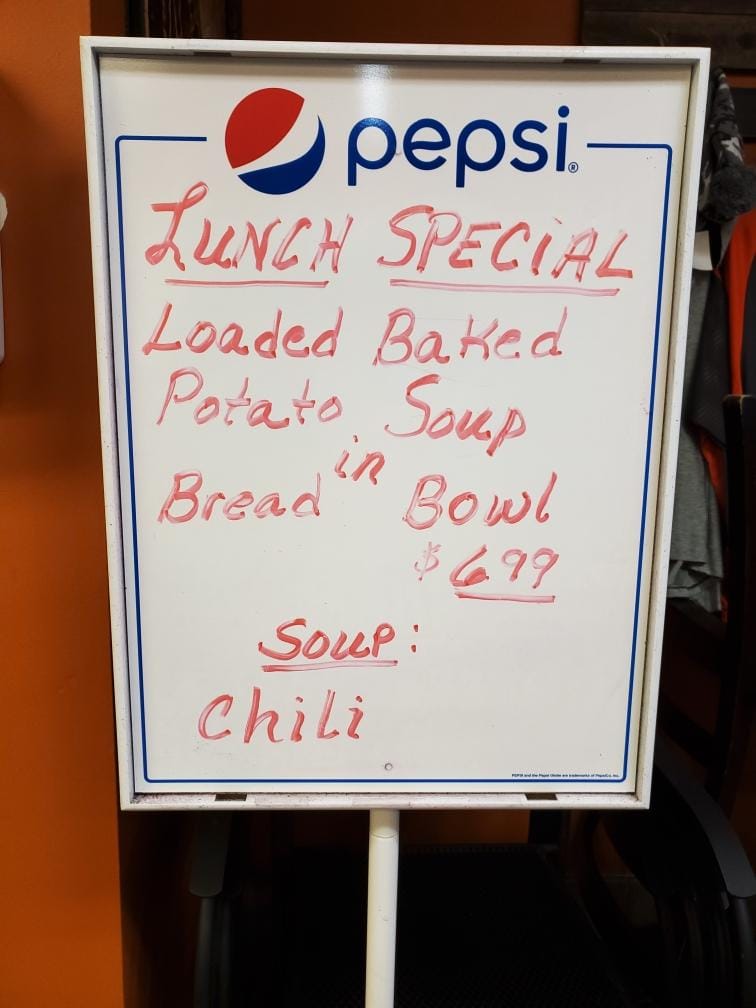 pepsi®
LUNCH SPECIAL
Loaded Baked
Potato Soup
in
Bread Bowl
$6.99
Soup:
Chili
PEPSI and the Pepsi Globe are trademarks of PepsiCo, Inc.